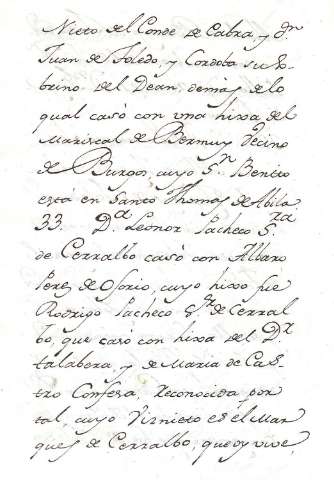 Nieto del Conde de Cabra, y dn
Juan de Toledo, y Cordova su So-
brino del Dean, demas de lo
qual casó con una hixa del
Mariscal de Bermuy Vecino
de Burgos, cuyo Sn. Benito
está en Santo Thomas de Abila
33. Da. Leonor Pacheco Sra.
de Cerralbo casó con Albaro
Perez de Osorio, cuyo hixo fue
Rodrigo Pacheco Sr. de Cerral
bo, que casó con hixa del Dr.
talabera, y de Maria de Cas-
tro Confesa, reconocida por
tal, cuyo Visnieto es el Mar
ques de Cerralbo, que oy vive,